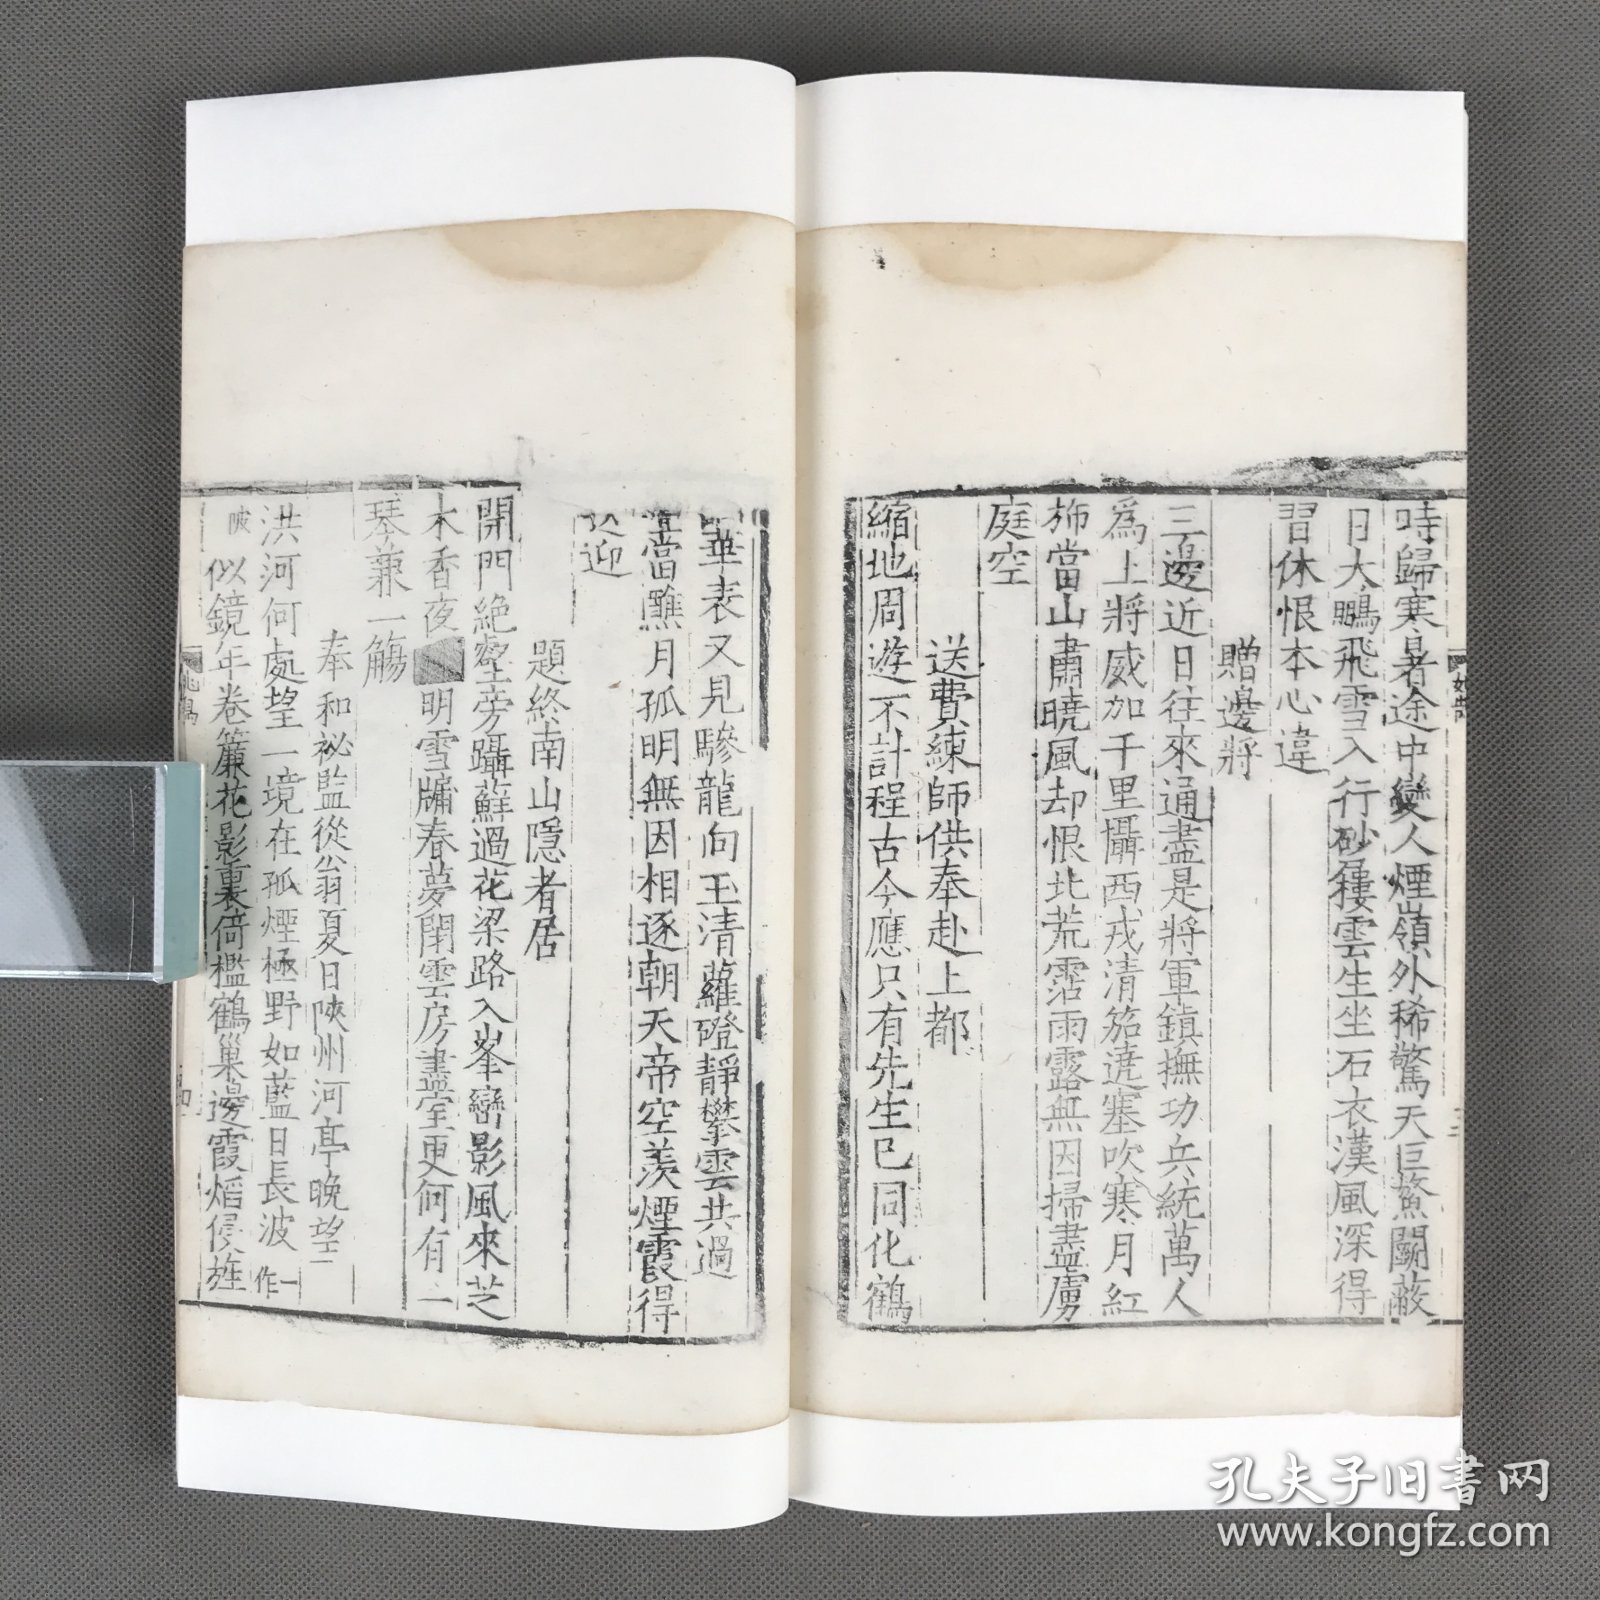 時歸寒暑途中變人煙嶺外稀驚天巨鰲闕蔽
日大鵬飛雪入行砂屨雲生坐石衣漢風深得
習休恨本心違
贈邊將
三邊近日往來通盡是將軍鎮撫功兵統萬人
爲上將威加千里懾西戎清笳遶塞吹寒月紅
斾當山肅曉風却恨北荒霑雨露無因掃盡虜
庭空
送費鍊師供奉赴上都
縮地周遊不計程古今應只有先生已同化鶴
華表又見驂龍向玉清蘿磴靜攀雲共過
當醮月孤明無因相逐朝天帝空羨煙霞得
迎
題終南山隱者居
開門絶壑旁躡蘚過花梁路入峯巒影風來芝
木香夜明雪牖春夢閉雲房盡室更何有一
琴兼一觴
奉和祕監從翁夏日陝州河亭晚望二
洪河何處望一境在孤煙極野如藍日長波一作
陝似鏡年卷簾花影裏倚檻鶴巢邊霞焰侵旌
孔夫子旧書网
www.kongfz.com